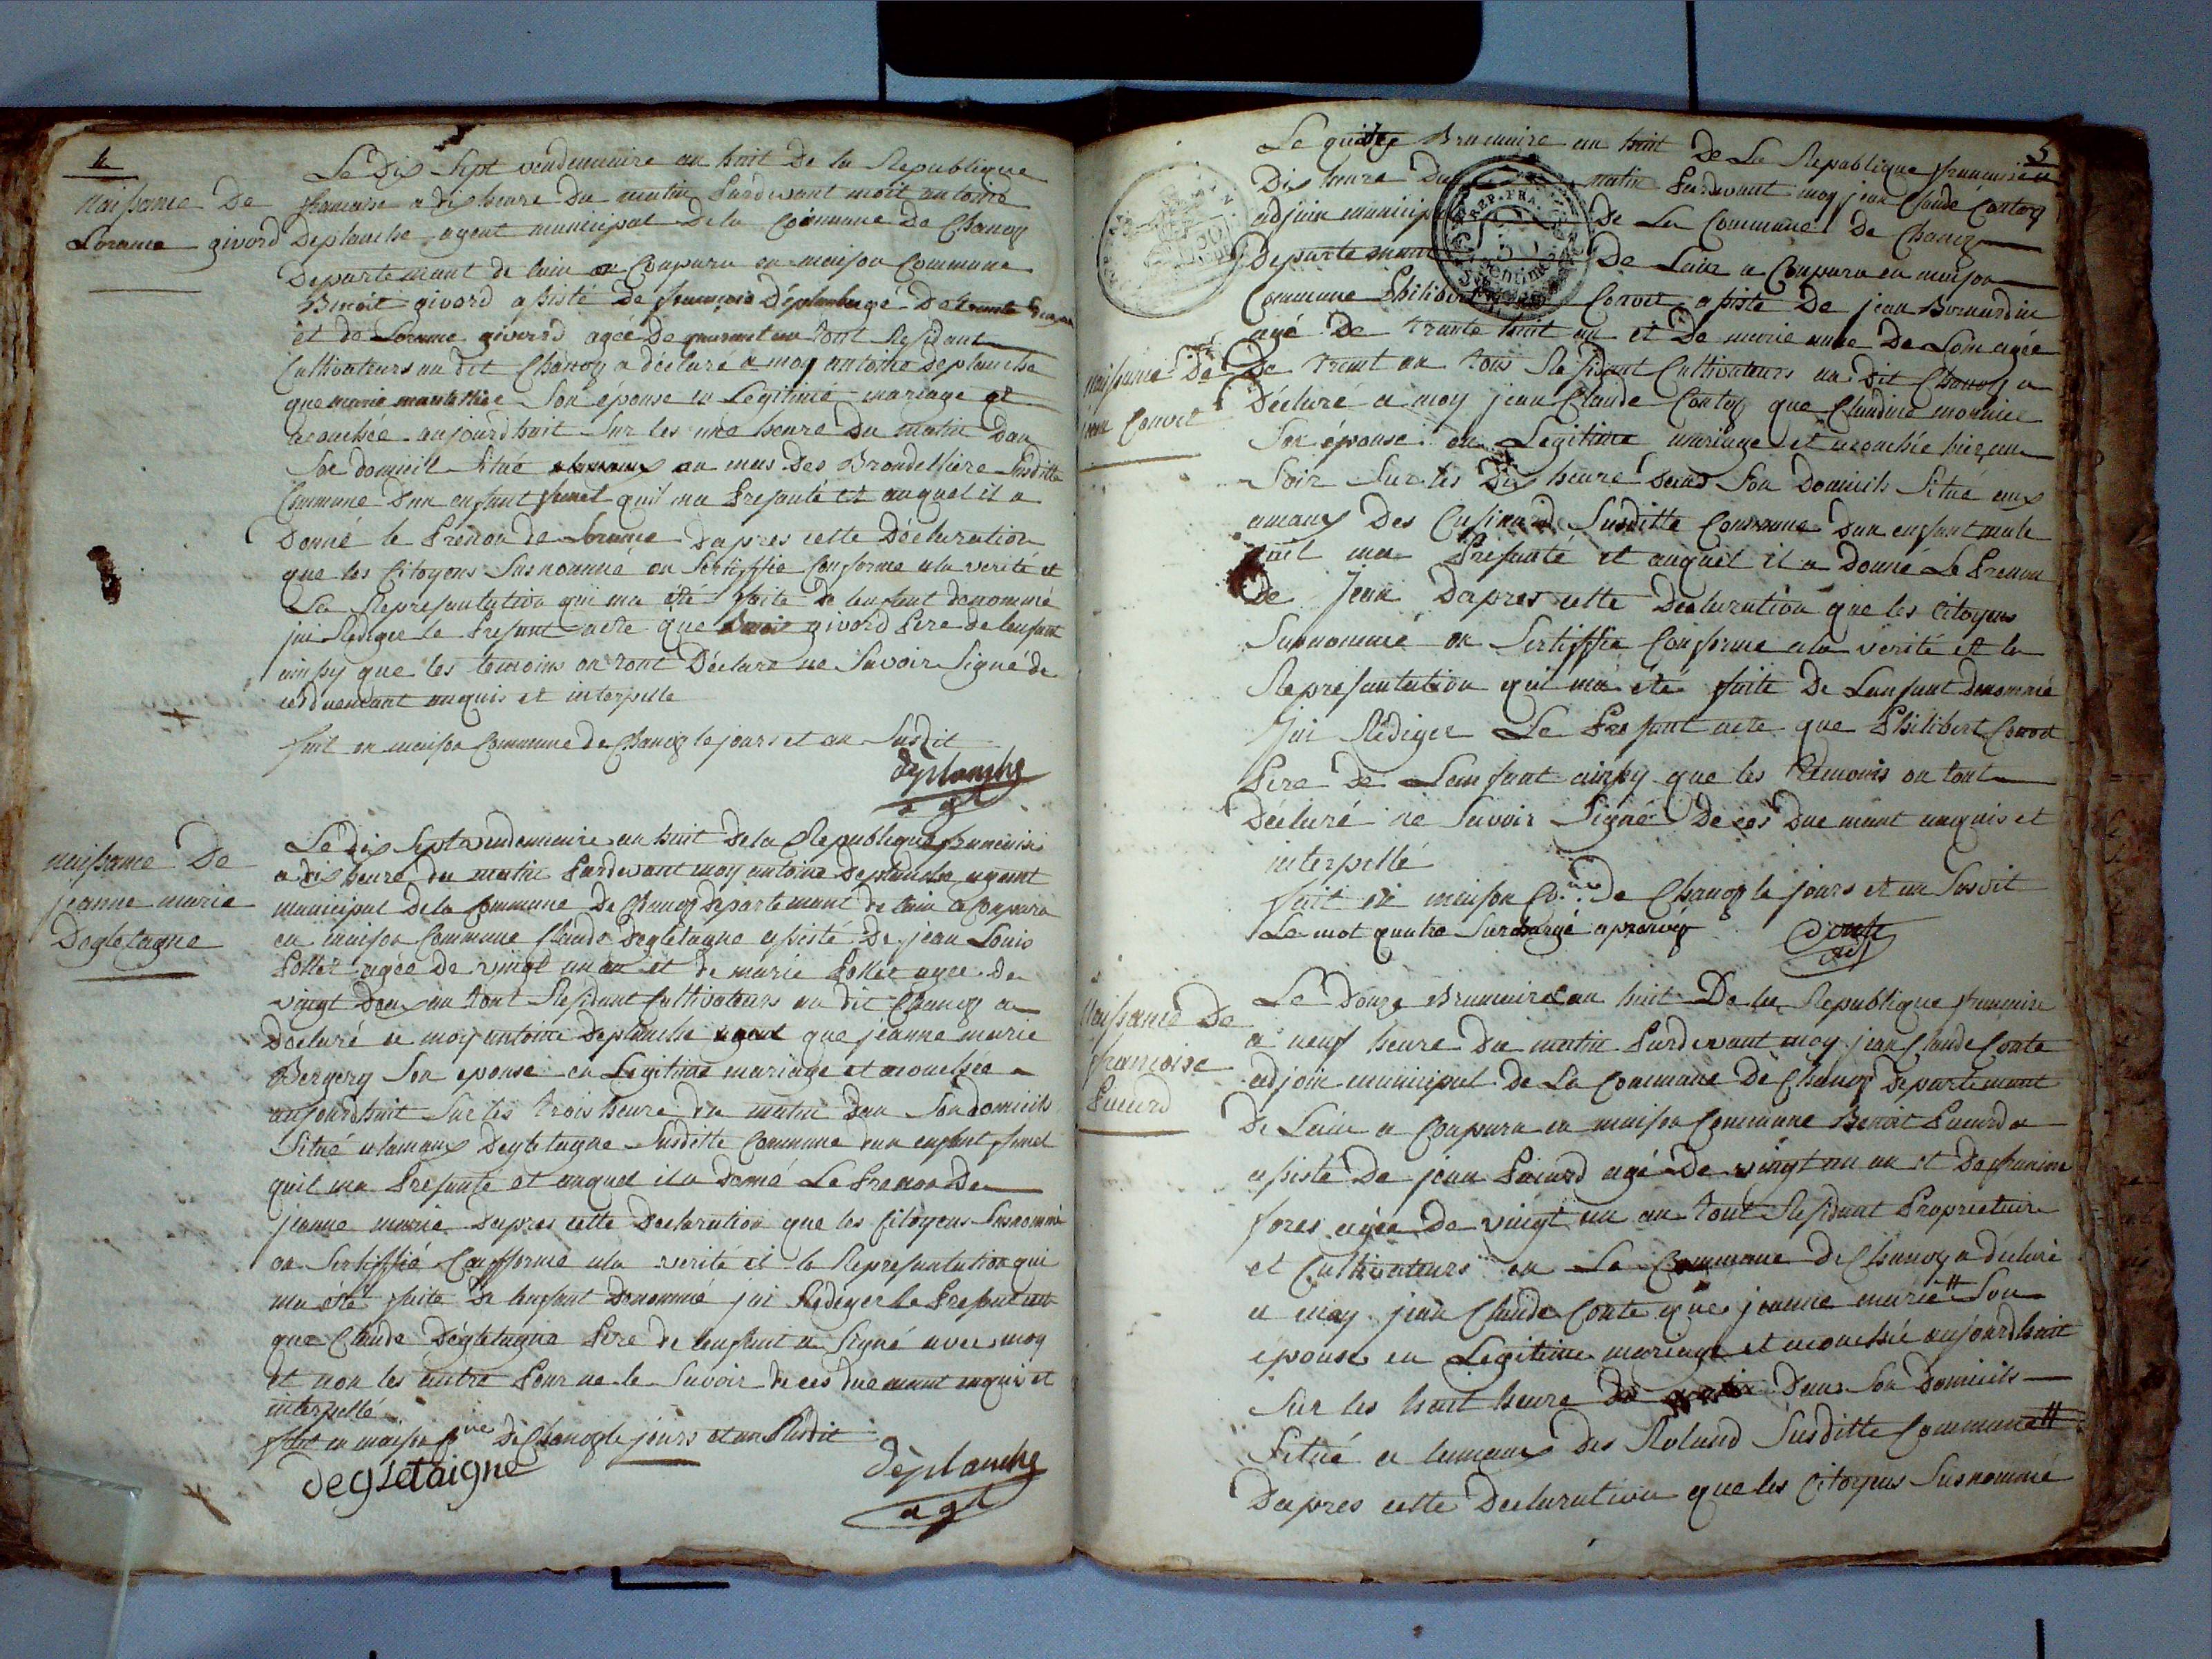 4
Le Dix Sept vendemiaire an huit De la Republique
francaise a dix heure Du matin Pardevant moit antoine
Deplanche agent municipal De la Commune De Chanoz
Departemant de lain a Conparu en maison Commune
Benoit givord asisté De francois Déplanche agé De trente
et de Lorance givord agée De quarant an tout Residant
Cultivateurs au dit Chanoz a déclaré a moy antoine Deplanche
que marie Son épouse en Legitime mariage et
acouchée aujourdhuit Sur les une heure Du matin Dan
Son domicile Situé au mas Des Brondelliere Susditte
Commune Dun enfant femel quil ma Presanté et auquel il a
Donné le Prenon de Lorance Dapres cette Déclaration
que les Citoyens Susnommé on Sertiffié Conforme a la verité et
La Representation qui ma été faite De lenfant denommé
jai Rediger le Presant acte que givord Pere de lenfant
ainsy que les temoins on tout Déclaré ne Savoir Signé de
ces duemant anquis et interpellé
fait en maison Commune de Chanoz le jours et an Susdit
deplanche
agt
naissance De
Lorance givord
Le dix Sept vendemiaire an huit De la Republique francaise
a dix heure du matin Pardevant moy antoine Deplanche agant
municipal De la Commune De Chanoz departemant de lain a Conparu
en maison Commune Claude Degletagne asisté De jean Louis
Pollet agée De vingt un an et de marie Pollet agée de
vingt Deux an tout Residant Cultivateurs au dit Chanoz a
Declaré a moy antoine Deplanche agant que jeanne marie
Bergery Son epouse en Legitime mariage et acouchée
aujourdhuit Sur les trois heure du matin Dan Son domicils
Situé a lamaux Degletagne Susditte Commune dun enfant femel
quil ma Presanté et auquel il a Donné Le Prenon De
jeanne marie Dapres cette Declaration que les Citoyens Susnommé
on Sertiffié Confforme a la verité et la Represantation qui
ma été faite De lenfant Denommé jai Rediger le Presant acte
que Claude Dégletagne Pere de lenfant a Signé avec moy
et non les autre Pour ne le Savoir de ces duemant enquis et
interpellé
fait en maison Cne De Chanoz le jours et an Susdit
degletaigne
déplanche
agt
naissance De
jeanne marie
Degletagne
5
Le quatre Brumaire an huit De La Republique francaise a
Dix heure Du matin Pardevant moy jean Claude Contey
adjoin municipal De La Commune De Chanoz
Departemant De Lain a Conparu en maison
Commune Philibert Convet asisté De jean Bernardin
agé De trante huit an et De marie anne De Lom agée
De trant an tous Residant Cultivateurs au Dit Chanoz a
Déclaré a moy jean Claude Contey que Claudine monnier
Son épouse en Legitime mariage et acouchée hier au
Soir Sur les Dix heure dans Son Domicils Situé aux
amaux Des Cusinard Susditte Commune Dun enfant male
quil ma Presanté et auquel il a Donné Le Prenon
De Jean Dapres cette Declaration que les Citoyens
Susnommé on Sertiffié Conforme a la verité et la
Represantation qui ma été faite De Lanfant Denommé
Jai Rédiger Le Presant acte que Philibert Convet
Pere De Lanfant ainsy que les Temoins on tout
Déclaré ne Savoir Signé De ces Duemant anquis et
interpellé
fait en maison Cone De Chanoz le jours et an Susdit
Le mot quatre Surchargé aprouvé
Conte
adj
REP. FRA.
naissance De
jean Convet
Le Douze Brumaire an huit De la Republique francaise
a neuf heure Du matin Pardevant moy jean Claude Conte
adjoin municipal De La Commune De Chanoz Departemant
De Lain a Conparu en maison Commune Benoit Picard
asisté De jean Picard agé De vingt un an et De francoise
fores agée De vingt un an tout Residant Proprietaire
et Cultivateurs en La Commune De Chanoz a déclaré
a moy jean Claude Conte que jeanne marie # Son
épouse en Legitime mariage et acouchée aujourdhuit
Sur les huit heure du matin Dans Son Domicils
Situé a lamaux Des Roland Susditte Commune #
Dapres cette Declaration que les Citoyens Susnommé
naissance De
francoise
Picard